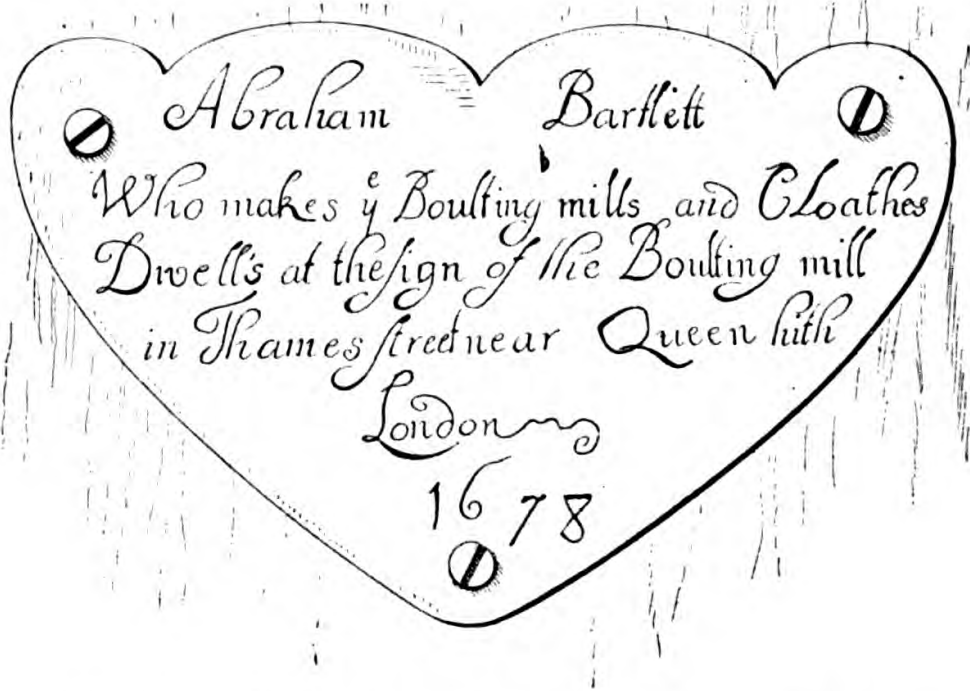 Abraham Bartlett
Who makes yᵉ Boulting mills and CLoathes
Dwells at the ſign of the Boulting mill
in Thames ſtreet near Queen hith
London
1678